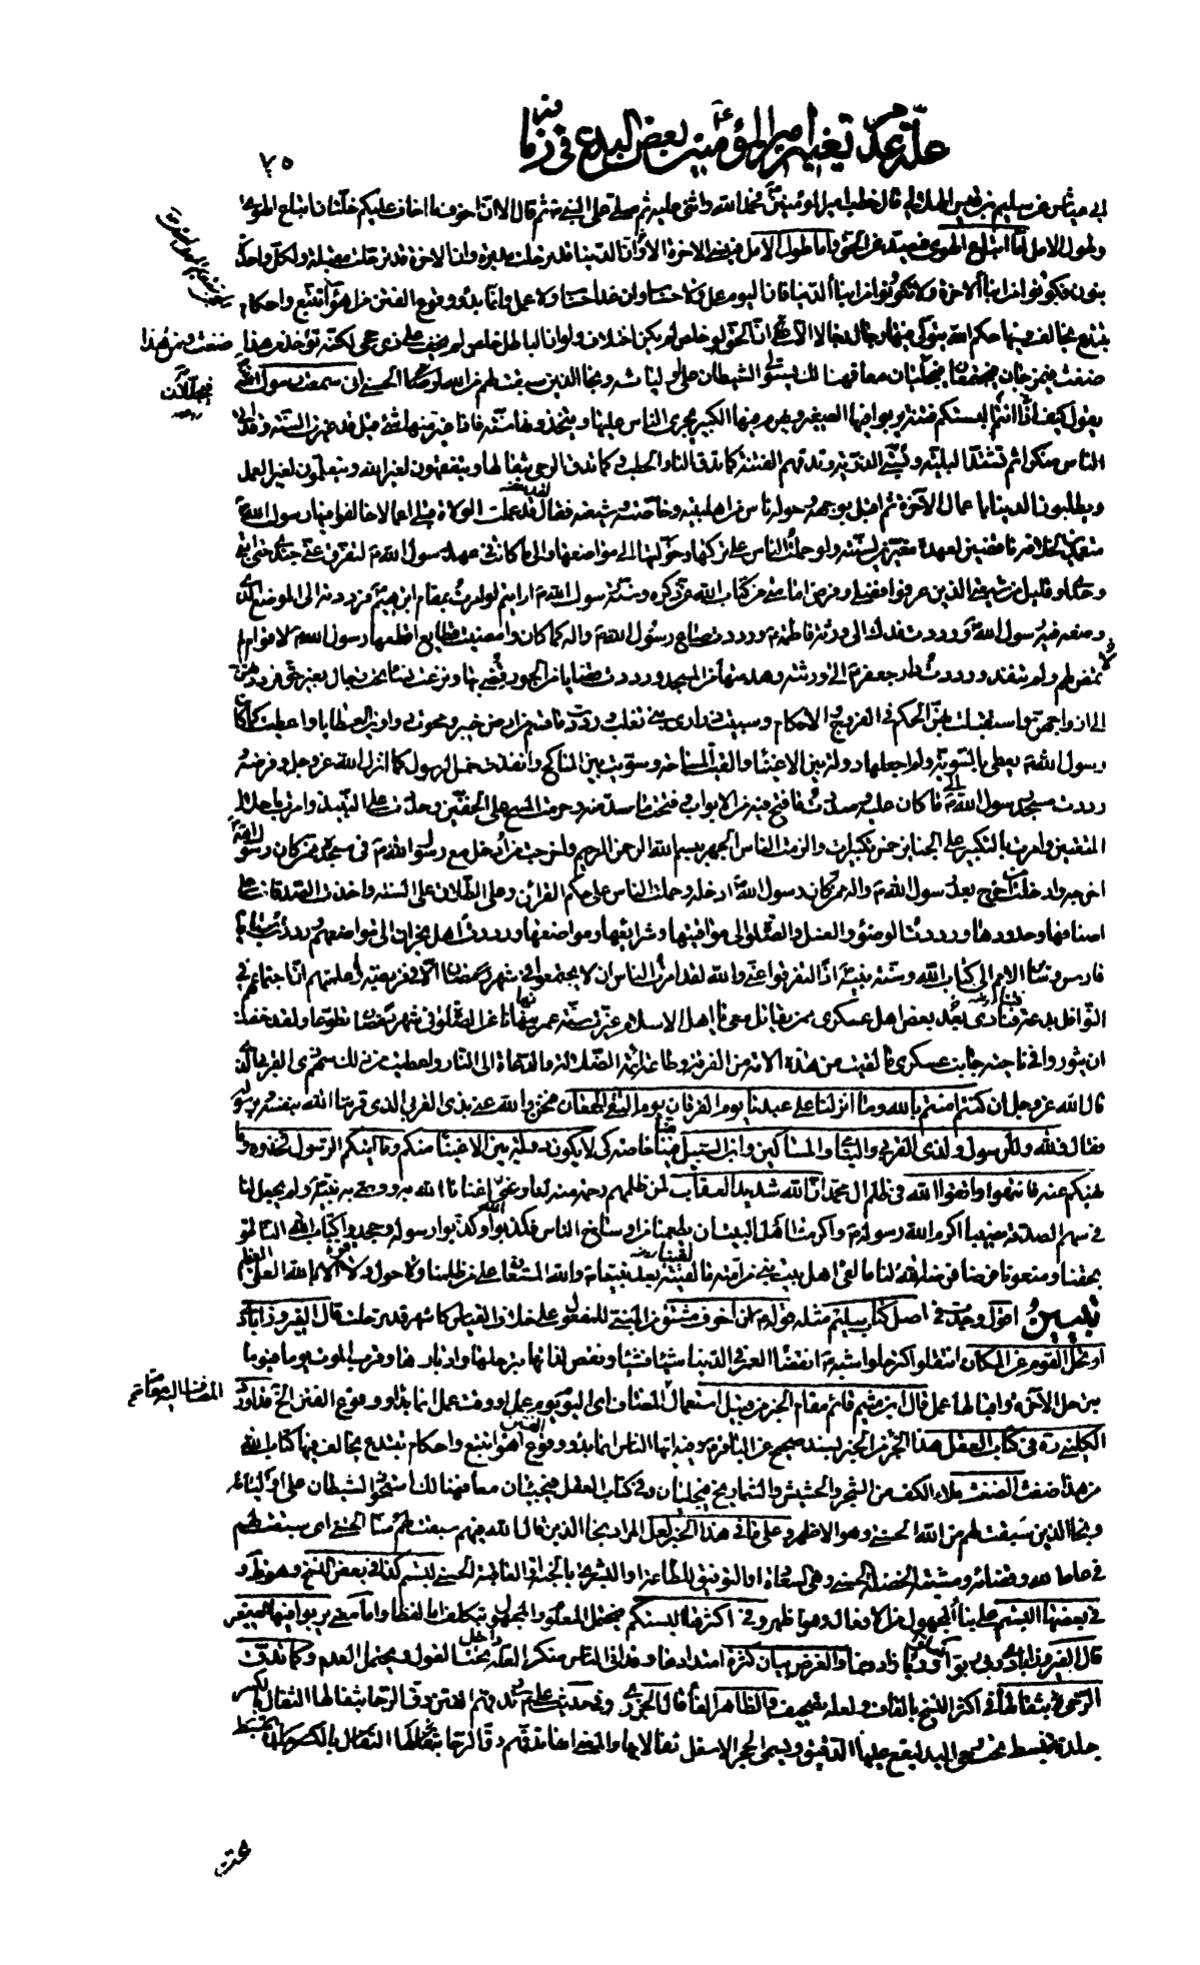 علّة عدم تغيير أمير المؤمنين بعض البدع في زمانه
٧٥
ابي عياش عن سليم بن قيس الهلالي قال خطب امير المؤمنين فحمد الله واثنى عليه ثم صلى على النبي ثم قال الا ان اخوف ما اخاف عليكم خلتان اتباع الهوى
وطول الامل اما اتباع الهوى فيصد عن الحق واما طول الامل فينسي الاخرة الا وان الدنيا قد ترحلت مدبرة وان الاخرة قد ترحلت مقبلة ولكل واحدة
بنون فكونوا من ابناء الاخرة ولا تكونوا من ابناء الدنيا فان اليوم عمل ولا حساب وان غدا حساب ولا عمل وانما بدؤ وقوع الفتن من اهواء تتبع واحكام
تبتدع يخالف فيها حكم الله يتولى فيها رجال رجالا الا ان الحق لو خلص لم يكن اختلاف ولو ان الباطل خلص لم يخف على ذي حجى لكنه يؤخذ من هذا
ضغث ومن هذا
ضغث فيمزجان فيجتمعان فيجللان معا فهنالك يستولي الشيطان على اوليائه ونجا الذين سبقت لهم من الله الحسنى اني سمعت رسول الله
يقول كيف انتم اذا لبستكم فتنة يربو فيها الصغير ويهرم فيها الكبير يجري الناس عليها ويتخذونها سنة فاذا غير منها شئ قيل قد غيرت السنة وقد اتى
الناس منكرا ثم تشتد البلية وتسبى الذرية وتدقهم الفتنة كما تدق النار الحطب وكما تدق الرحى بثفالها ويتفقهون لغير الله ويتعلمون لغير العمل
ويطلبون الدنيا باعمال الآخرة ثم اقبل بوجهه وحوله ناس من اهل بيته وخاصته وشيعته فقال قد عملت الولاة قبلي اعمالا خالفوا فيها رسول الله
متعمدين لخلافه ناقضين لعهده مغيرين لسنته ولو حملت الناس على تركها وحولتها الى مواضعها والى ما كانت في عهد رسول الله لتفرق عني جندي حتى ابقى
وحدي او قليل من شيعتي الذين عرفوا فضلي وفرض امامتي من كتاب الله عز ذكره وسنة رسول الله ارايتم لو امرت بمقام ابرهيم فرددته الى الموضع الذي
وضعه فيه رسول الله ورددت فدك الى ورثة فاطمة ورددت صاع رسول الله واله كما كان وامضيت قطايع اقطعها رسول الله لاقوام لم
تمض لهم ولم تنفذ ورددت دار جعفر الى ورثته وهدمتها من المسجد ورددت قضايا من الجور قضي بها ونزعت نساء تحت رجال بغير حق فرددتهن
الى ازواجهن واستقبلت بهن الحكم في الفروج والاحكام وسبيت ذراري بني تغلب ورددت ما قسم من ارض خيبر ومحوت دواوين العطايا واعطيت كما كان
رسول الله يعطي بالسوية ولم اجعلها دولة بين الاغنياء والقيت المساحة وسويت بين المناكح وانفذت خمس الرسول كما انزل الله عز وجل وفرضه
ورددت مسجد رسول الله الى ما كان عليه وسددت ما فتح فيه من الابواب وفتحت ما سد منه وحرمت المسح على الخفين وحددت على النبيذ وامرت باحلال
المتعتين وامرت بالتكبير على الجنايز خمس تكبيرات والزمت الناس الجهر ببسم الله الرحمن الرحيم واخرجت من ادخل مع رسول الله في مسجده ممن كان رسول الله
اخرجه وادخلت من اخرج بعد رسول الله واله ممن كان رسول الله ادخله وحملت الناس على حكم القران وعلى الطلاق على السنة واخذت الصدقات على
اصنافها وحدودها ورددت الوضوء والغسل والصلوة الى مواقيتها وشرايعها ومواضعها ورددت اهل نجران الى مواضعهم ورددت سبايا
فارس وساير الامم الى كتاب الله وسنة نبيه اذا لتفرقوا عني والله لقد امرت الناس ان لا يجتمعوا في شهر رمضان الا في فريضة واعلمتهم ان اجتماعهم في
النوافل بدعة فتنادى بعض اهل عسكري ممن يقاتل معي يا اهل الاسلام غيرت سنة عمر ينهانا عن الصلوة في شهر رمضان تطوعا ولقد خفت
ان يثوروا في ناحية جانب عسكري ما لقيت من هذه الامة من الفرقة وطاعة ائمة الضلالة والدعاة الى النار واعطيت من ذلك سهم ذي القربى الذي
قال الله عز وجل ان كنتم امنتم بالله وما انزلنا على عبدنا يوم الفرقان يوم التقى الجمعان فنحن والله عنى بذي القربى الذي قرننا الله بنفسه وبرسوله
فقال فلله وللرسول ولذي القربى واليتامى والمساكين وابن السبيل فينا خاصة كي لا يكون دولة بين الاغنياء منكم وما آتيكم الرسول فخذوه وما
نهيكم عنه فانتهوا واتقوا الله في ظلم ال محمد ان الله شديد العقاب لمن ظلمهم رحمة منه لنا وغنى اغنانا الله به ووصى به نبيه ولم يجعل لنا
في سهم الصدقة نصيبا اكرم الله رسوله واكرمنا اهل البيت ان يطعمنا من اوساخ الناس فكذبوا الله وكذبوا رسوله وجحدوا كتاب الله الناطق
بحقنا ومنعونا فرضا فرضه الله لنا ما لقي اهل بيت نبي من امته ما لقينا بعد نبينا والله المستعان على من ظلمنا ولا حول ولا قوة الا بالله العلي العظيم
تبيين اقول وجدت في اصل كتاب سليم مثله قوله ان اخوف مشتق من المبني للمفعول على خلاف القياس كاشهر قد ترحلت قال الفيروزابادي
ارتحل القوم عن المكان انتقلوا كترحلوا شبه انقضاء العمر في الدنيا شيئا فشيئا ونقص لذاتها بترحلها وادبارها وقرب الموت يوما فيوما
بترحل الآخرة واقبالها عمل قال ابن ميثم قائم مقام الخبر من قبيل استعمال المضاف اليه مقام المضاف
اي اليوم يوم عمل او وقت عمل انما بدؤ وقوع الفتن الخ قد اورد
الكليني ره في كتاب العقل هذا الجزء من الخبر بسند صحيح عن الباقر وفيه ايها الناس انما بدؤ وقوع الفتن اهواء تتبع واحكام تبتدع يخالف فيها كتاب الله
من هذا ضغث الضغث ملاء الكف من الشجر والحشيش والشماريخ فيجللان وفي كتاب العقل فيجيئان معا فهنالك استحوذ الشيطان على اوليائه
ونجا الذين سبقت لهم من الله الحسنى وهو الاظهر وعلى ما في هذا الخبر لعل المراد نجا الذين قال الله فيهم سبقت لهم منا الحسنى اي سبقت لهم
في علم الله وقضائه ومشيته الخصلة الحسنى وهي السعادة او التوفيق للطاعة او البشرى بالجنة او العاقبة الحسنى لبستكم كذا في بعض النسخ وهو ظ و
في بعضها البستم على بناء المجهول من الافعال وهو اظهر وفي اكثرها لبستكم فيحتمل المعلوم والمجهول بتكلف اما لفظا واما معنى يربو فيها الصغير
قال الفيروزابادي ربا ربوا كعلو زاد ونما والغرض بيان كثرة امتدادها وقد اتى الناس منكرا لعله داخل تحت القول ويحتمل العدم وكما تدق
الرحى بثفالها في اكثر النسخ بالقاف ولعله تصحيف والظاهر الفاء قال الجزري وفي حديث علي تدقهم الفتن دق الرحا بثفالها الثفال بالكسر
جلدة تبسط تحت رحى اليد ليقع عليها الدقيق ويسمى الحجر الاسفل ثفالا بها والمعنى انها تدقهم دق الرحا بثفالها